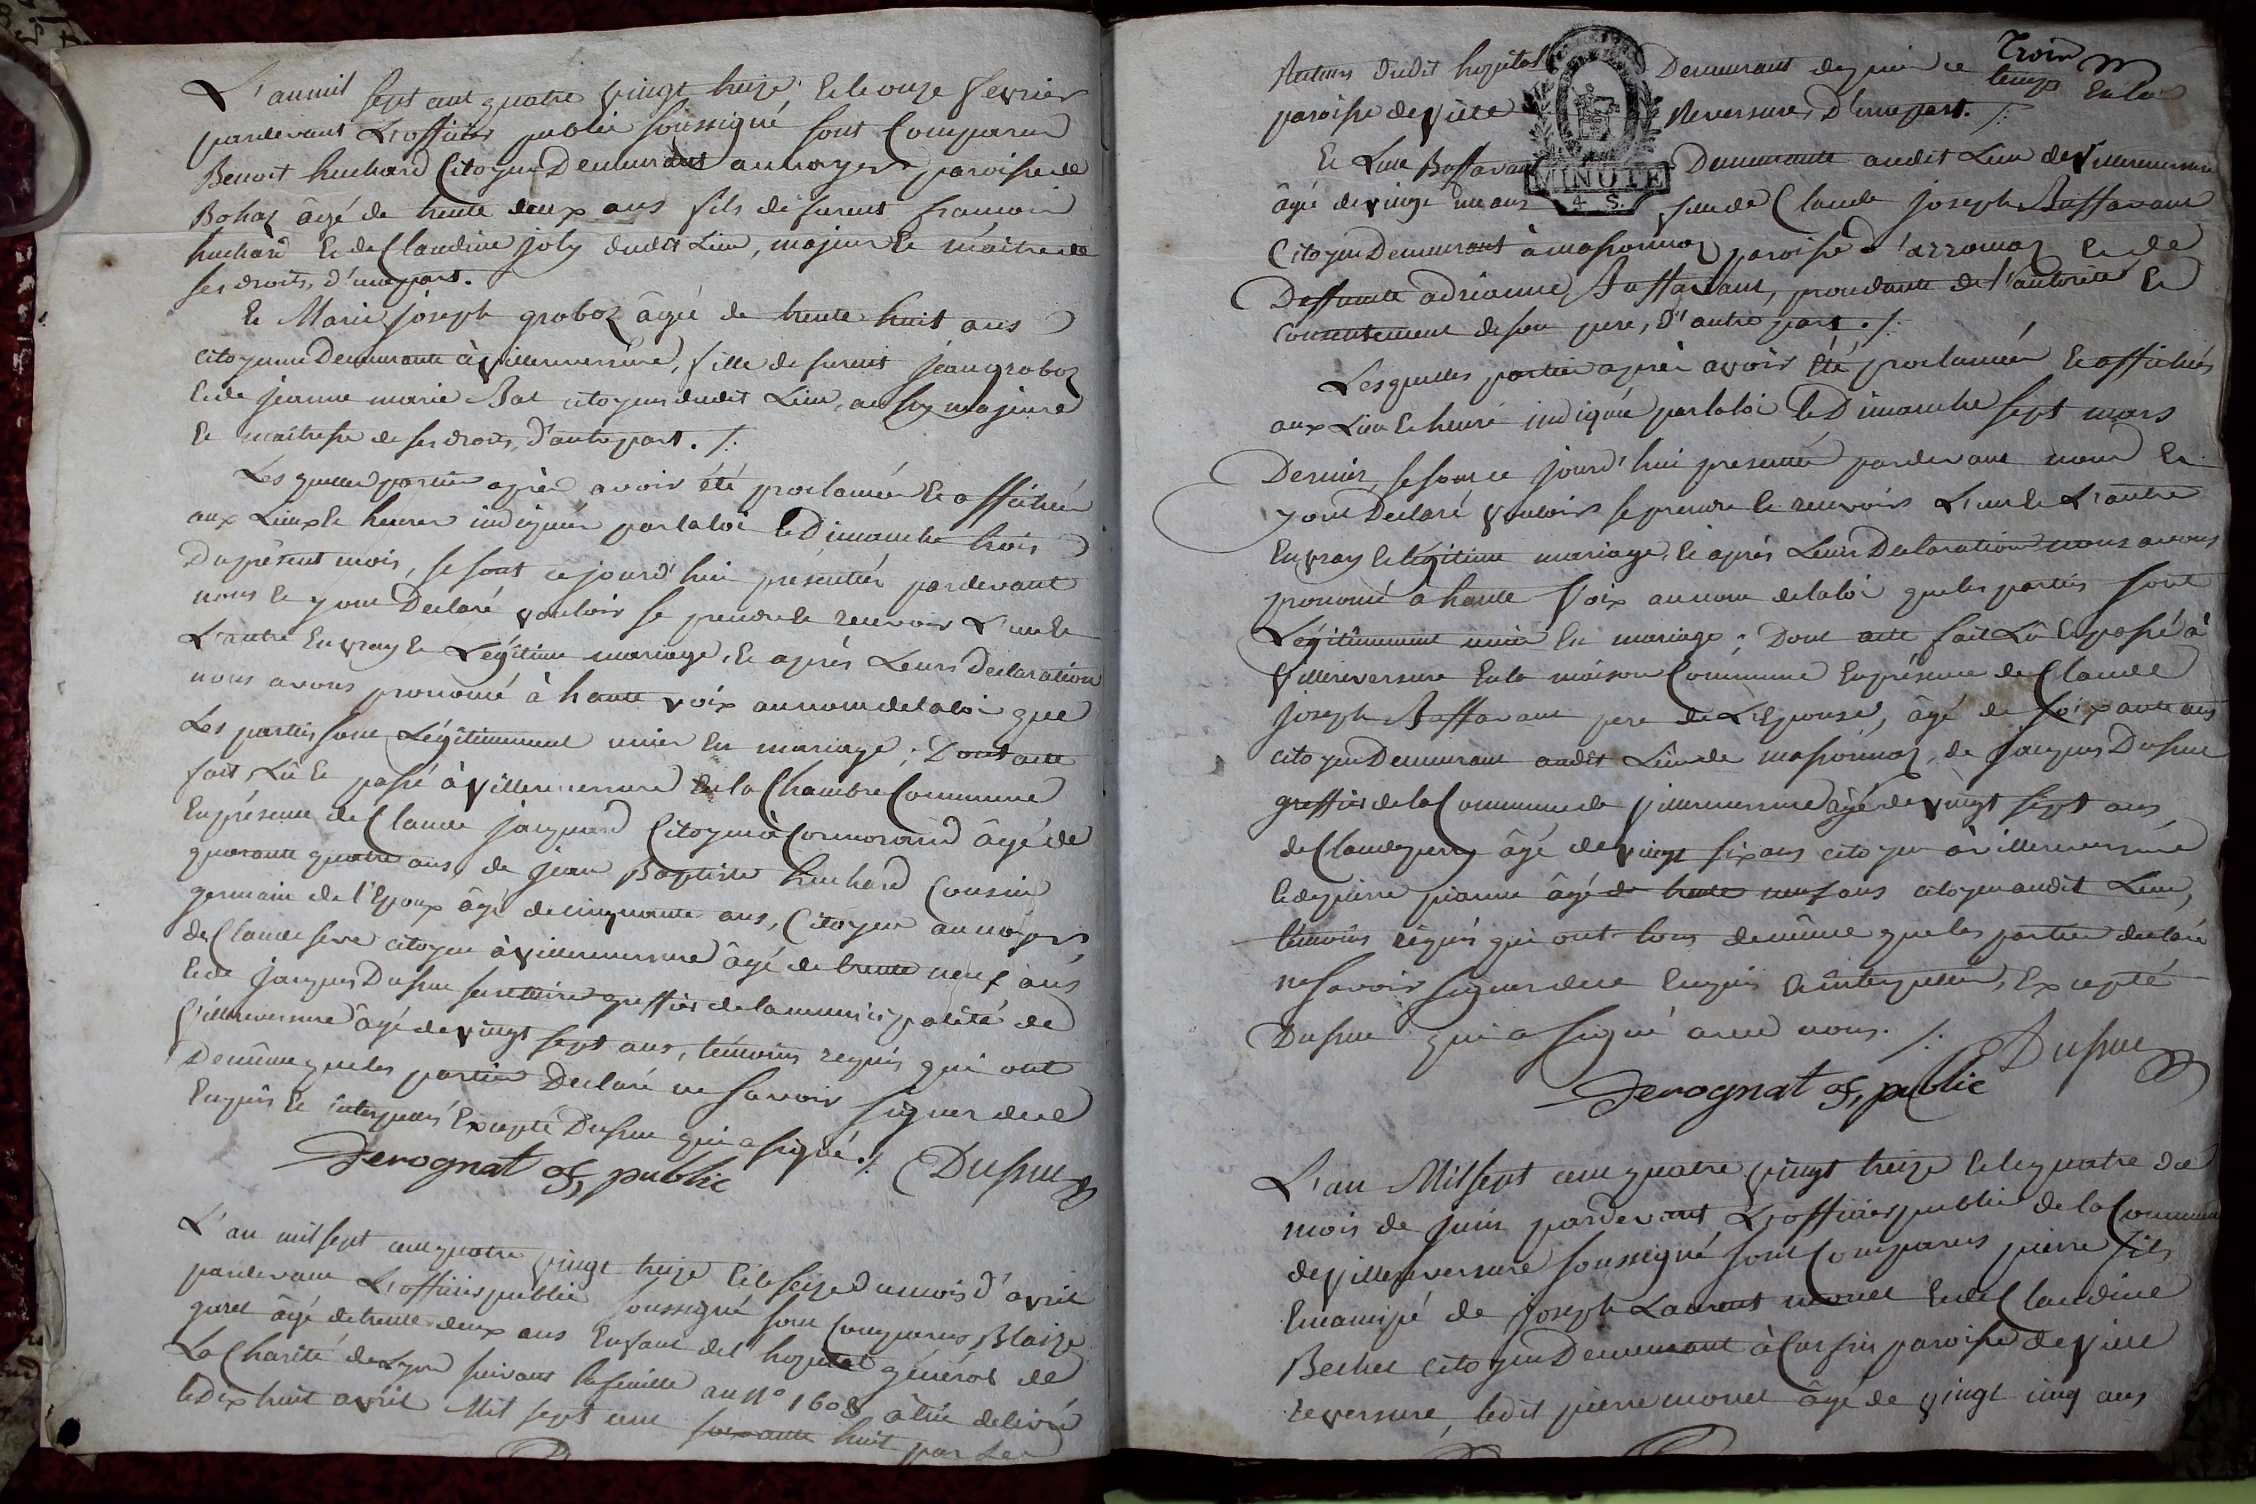 L'an mil sept cent quatre vingt treize et le onze fevrier
pardevant L'officier public soussigné sont Comparus
Benoit huchard Citoyen Demeurant au noyer, paroisse de
Bohaz âgé de trente deux ans fils de furent francois
huchard Et de Claudine joly dudit Lieu, majeur Et maitre de
ses droits, d'une part.
Et Marie joseph groboz âgée de trente huit ans
citoyenne Demeurante à Villereversure, fille de furent jean groboz
Et de jeanne marie Bat citoyens dudit Lieu, aussy majeure
Et maitresse de ses droits, d'autre part. /:
Lesquelles parties après avoir été proclamées Et affichées
aux Lieux Et heures indiquées par la loi le Dimanche trois
Du présent mois, se sont ce jourd'hui présentées pardevant
nous Et y ont Declaré vouloir se prendre Et recevoir L'un Et
L'autre En vray Et Légitime mariage, Et après Leurs Declaration
nous avons prononcé à haute voix au nom de la loi que
Les parties sont Légitimement unies En mariage ; Dont acte
fait Lû Et passé à Villereversure En la Chambre Commune
En présence de Claude jacquard Citoyen à Cormorand âgé de
quarante quatre ans, de jean Baptiste huchard Cousin
germain de l'Epoux âgé de cinquante ans, Citoyen au noyer,
de Claude seve citoyen à Villereversure âgé de trente neuf ans
Et de jacques Dufour secretaire greffier de la municipalité de
Villereversure âgé de vingt sept ans, témoins requis qui ont
De même que les parties Declaré ne savoir signer de ce
Enquis Et interpellés Excepté Dufour qui a signé. /:
Derognat of, public Dufour
L'an mil sept cent quatre vingt treize Et le seize du mois d'avril
pardevant L'officier public soussigné sont Comparus Blaize
âgé de trente deux ans Enfant de l'hopital général de
La Charité de Lyon suivant la feuille au N° 1608 à lui delivré
le Dix huit avril Mil sept cent soixante huit par Les
Trois
Recteurs dudit hopital Demeurant depuis ce temps En la
paroisse de Ville Reversure, D'une part. /:
MINUTE
4 S.
Et Demeurante audit Lieu de Villereversure
âgée de vingt un ans fille de Claude joseph Buffavant
Citoyen Demeurant à massonnaz paroisse d'arromaz Et de
Deffunte adrianne Buffavant, procedante de l'autorité Et
Consentement de son pere, D'autre part. /:
Lesquelles parties après avoir été proclamées Et affichées
aux Lieu Et heure indiquée par la loi le Dimanche sept mars
Dernier, se sont ce jourd'hui presentées pardevant nous Et
y ont Declaré vouloir se prendre Et recevoir L'un Et L'autre
En vray Et légitime mariage, Et après Leurs Declaration nous avons
prononcé à haute voix au nom de la loi que les parties sont
Légitimement unies En mariage ; Dont acte fait Lû Et passé à
Villereversure En la maison Commune En présence de Claude
joseph Buffavant pere de L'Epouse, âgé de soixante ans
citoyen Demeurant audit Lieu de massonnaz, de jacques Dufour
greffier de la Commune de Villereversure âgé de vingt sept ans,
de Claude âgé de vingt six ans citoyen à Villereversure
Et de pierre âgé de trente neuf ans citoyen audit Lieu,
témoins requis qui ont tous de même que les parties declaré
ne savoir signer de ce Enquis Et interpellés, Excepté
Dufour qui a signé avec nous. /: Dufour
Derognat of, public
L'an Mil sept cent quatre vingt treize Et le quatre du
mois de juin pardevant L'officier public de la Commune
de Villereversure soussigné sont Comparus pierre fils
Emancipé de joseph Laurent monet Et de Claudine
Citoyen Demeurant à paroisse de Ville
reversure, ledit pierre monet âgé de vingt cinq ans